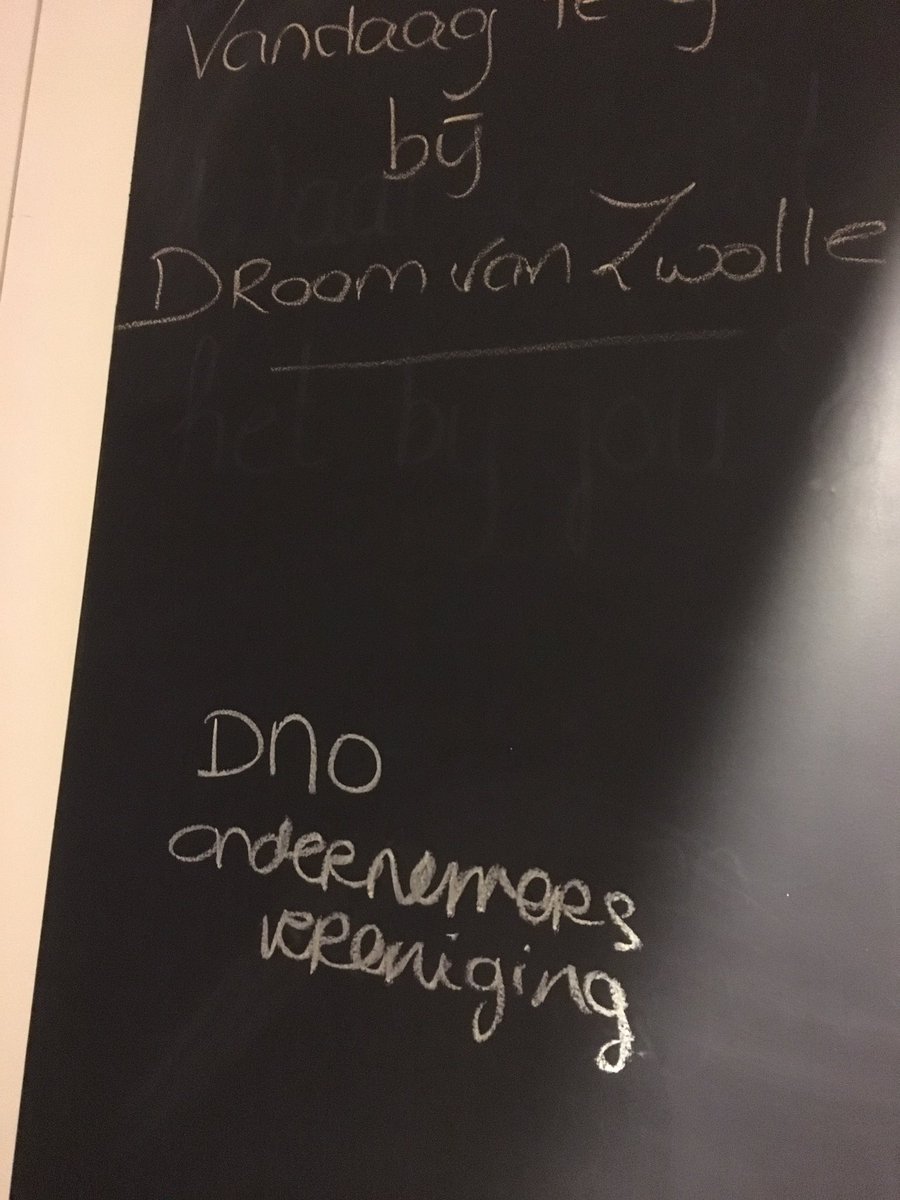 Vandaag te g
bij
Droom van Zwolle
het bij jou
DNO
ondernemers
vereniging